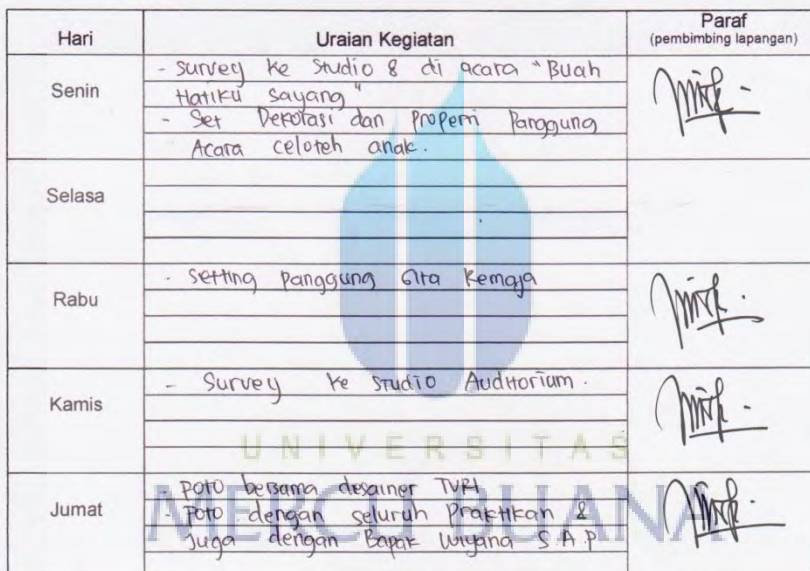 Hari Uraian Kegiatan Paraf
(pembimbing lapangan)
Senin
- Survey ke Studio 8 di acara "Buah
Hatiku Sayang"
- Set Dekorasi dan Properti Panggung
Acara celoteh anak.
Selasa
Rabu
- Setting Panggung Gita Remaja
Kamis
- Survey ke Studio Auditorium.
UNIVERSITAS
Jumat
- Poto bersama desainer TVRI
- Poto dengan seluruh Praktikan &
juga dengan Bapak Wiyana S.A.P
MERCU BUANA